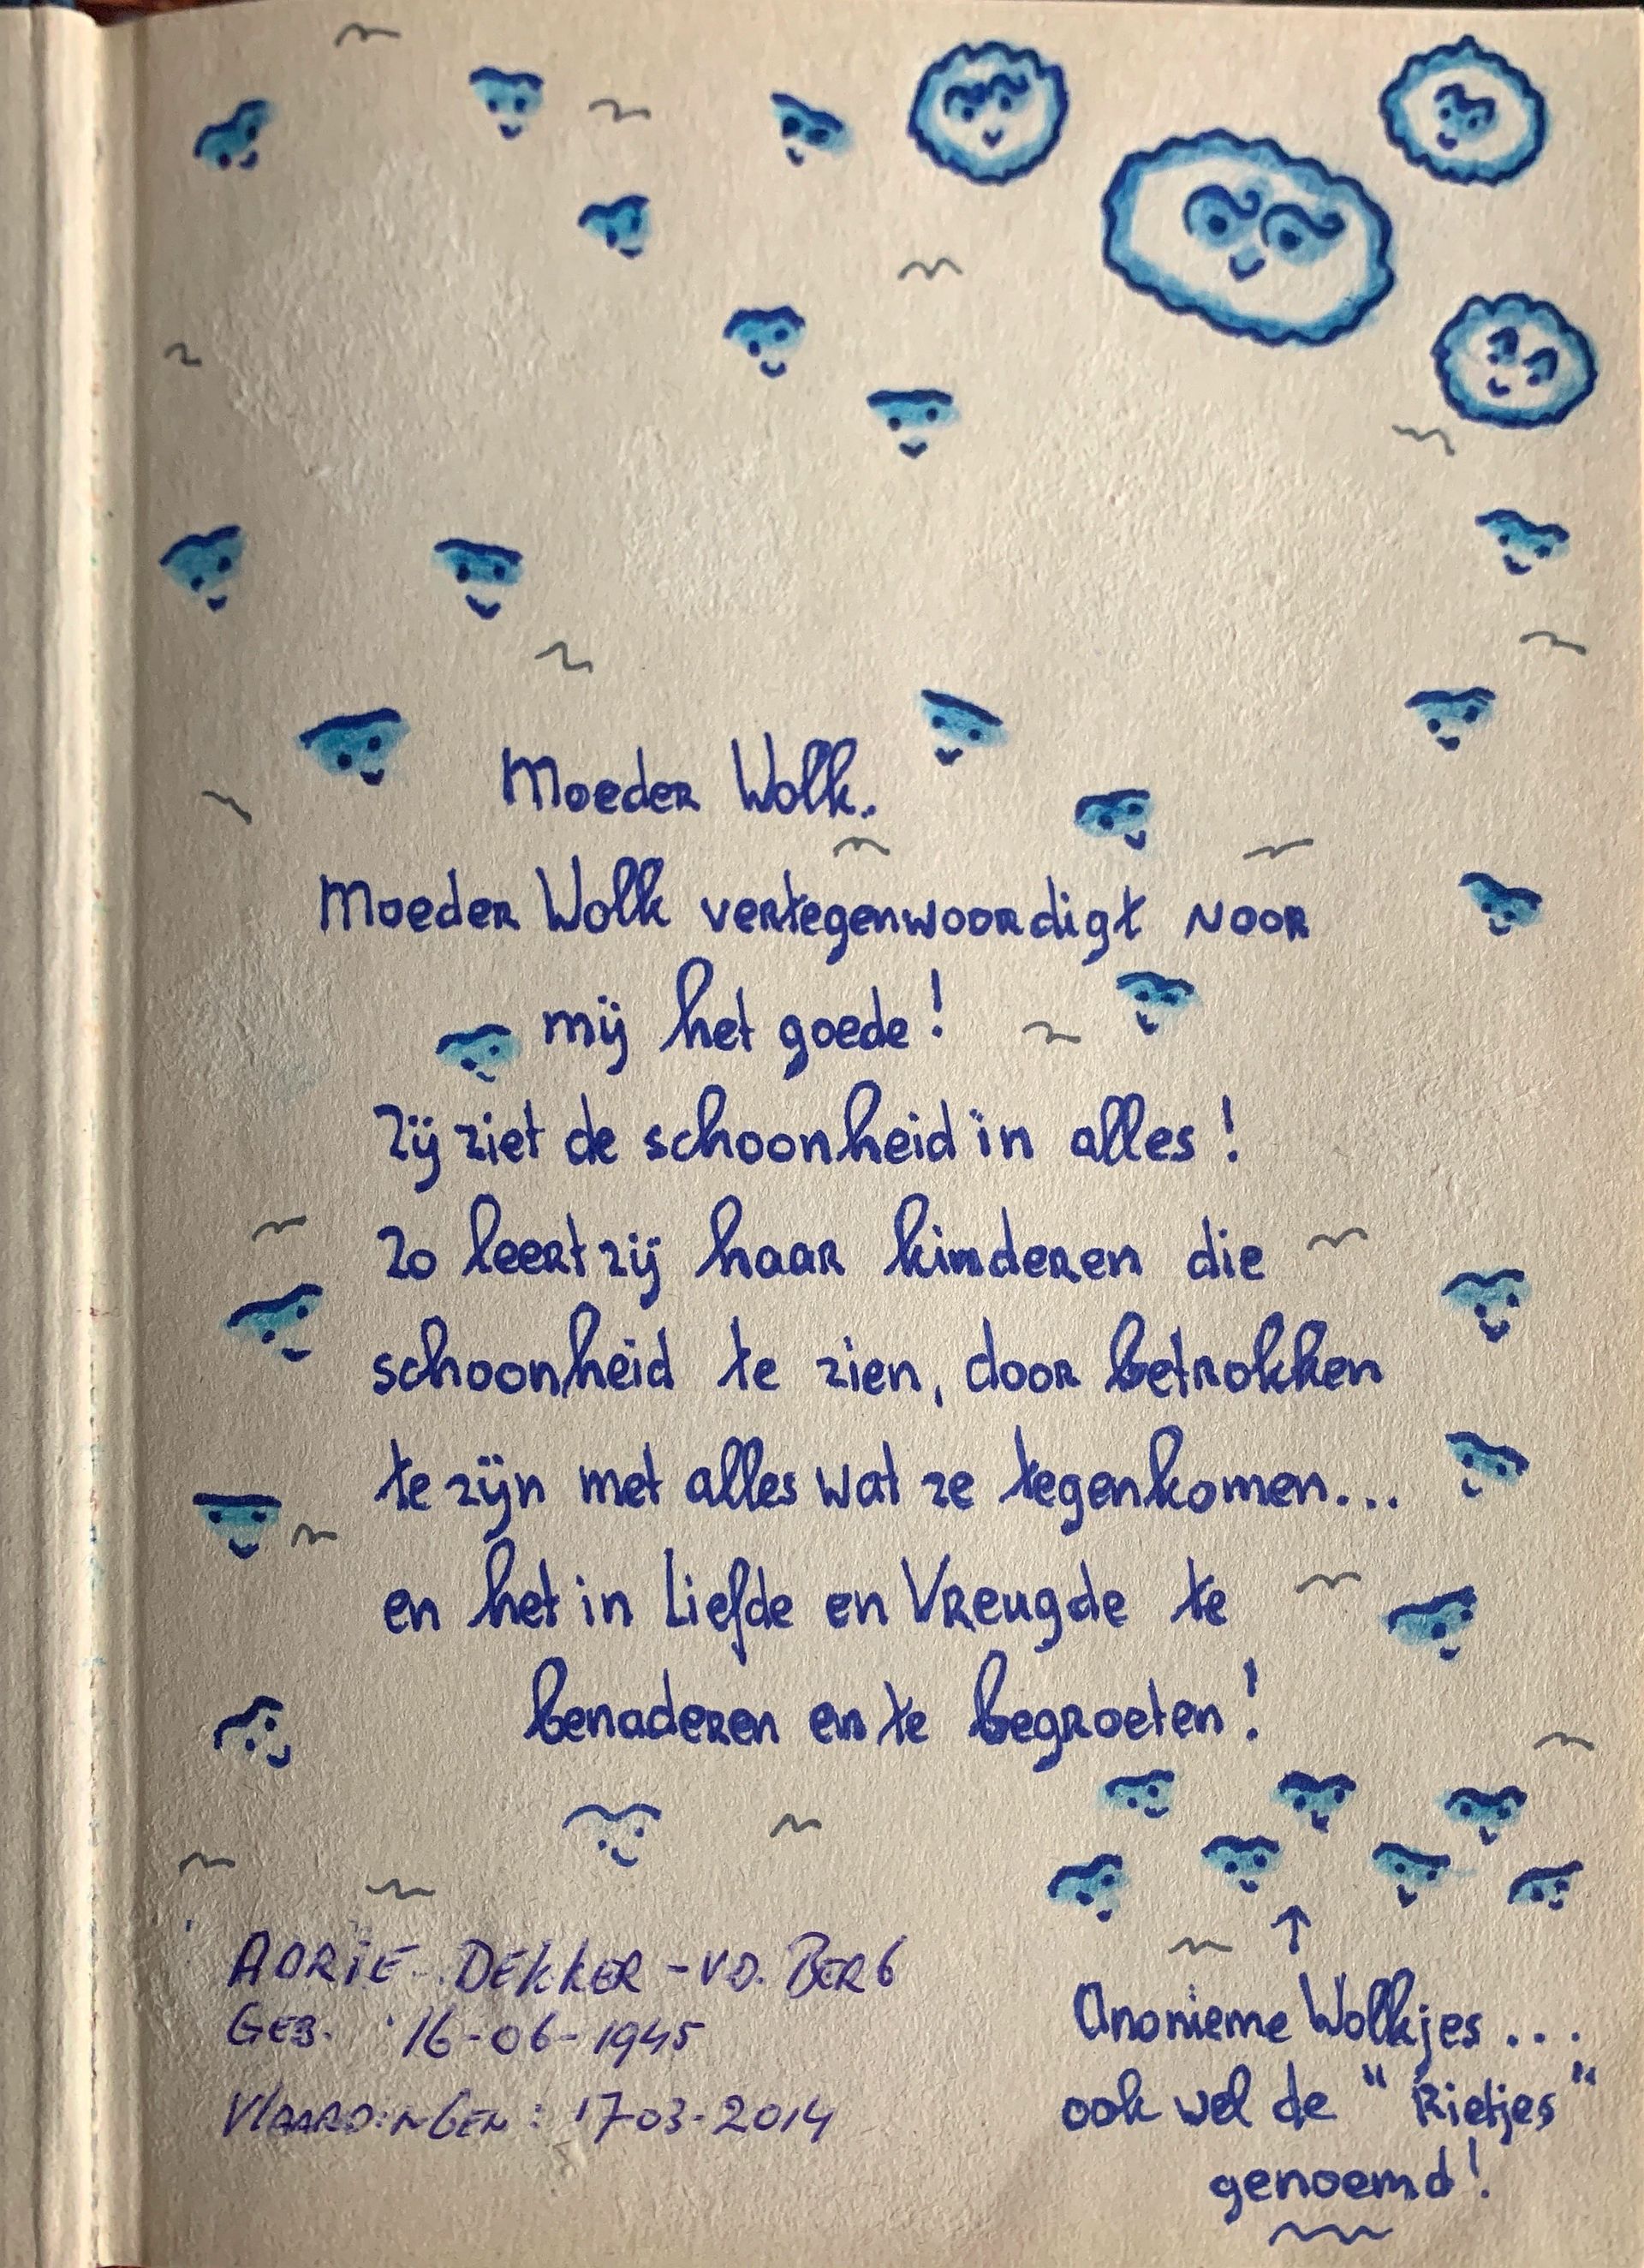 Moeder Wolk.
Moeder Wolk vertegenwoordigt voor
mij het goede!
Zij ziet de schoonheid in alles!
Zo leert zij haar kinderen die
schoonheid te zien, door betrokken
te zijn met alles wat ze tegenkomen...
en het in Liefde en Vreugde te
benaderen en te begroeten!
ADRIE DEKKER - VD. BERG
GEB. 16-06-1945
VLAARDINGEN: 17-03-2014
Anonieme Wolkjes...
ook wel de "Rietjes"
genoemd!